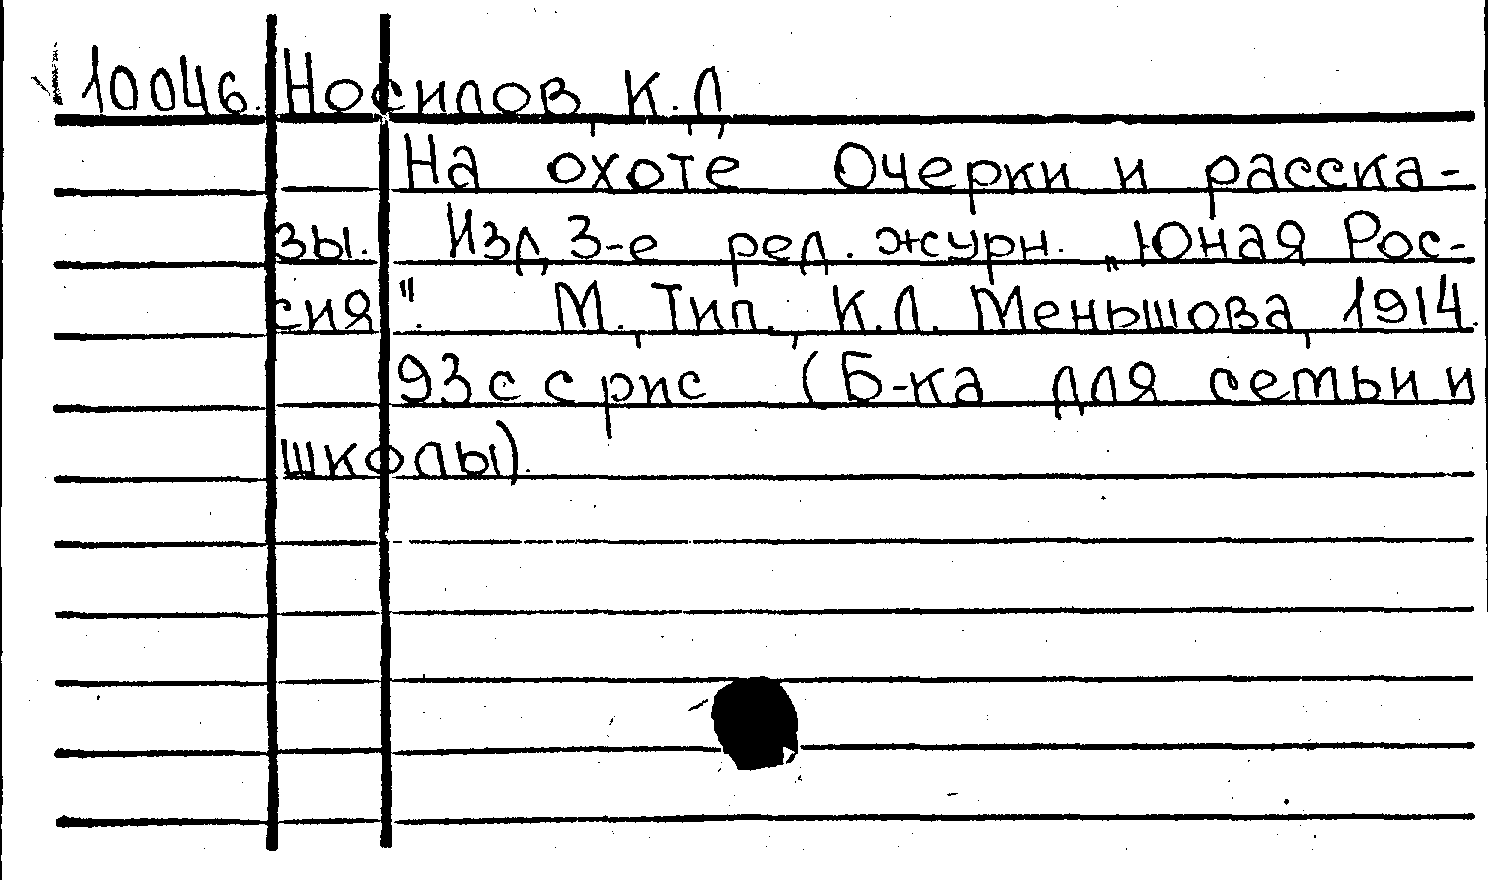 10046. Носилов, К.Д.
На охоте Очерки и расска-
зы. Изд, 3-е ред. журн. „Юная Рос-
сия". М., Тип., К.Л. Меньшова, 1914.
93 с с рис (Б-ка для семьи и
школы).